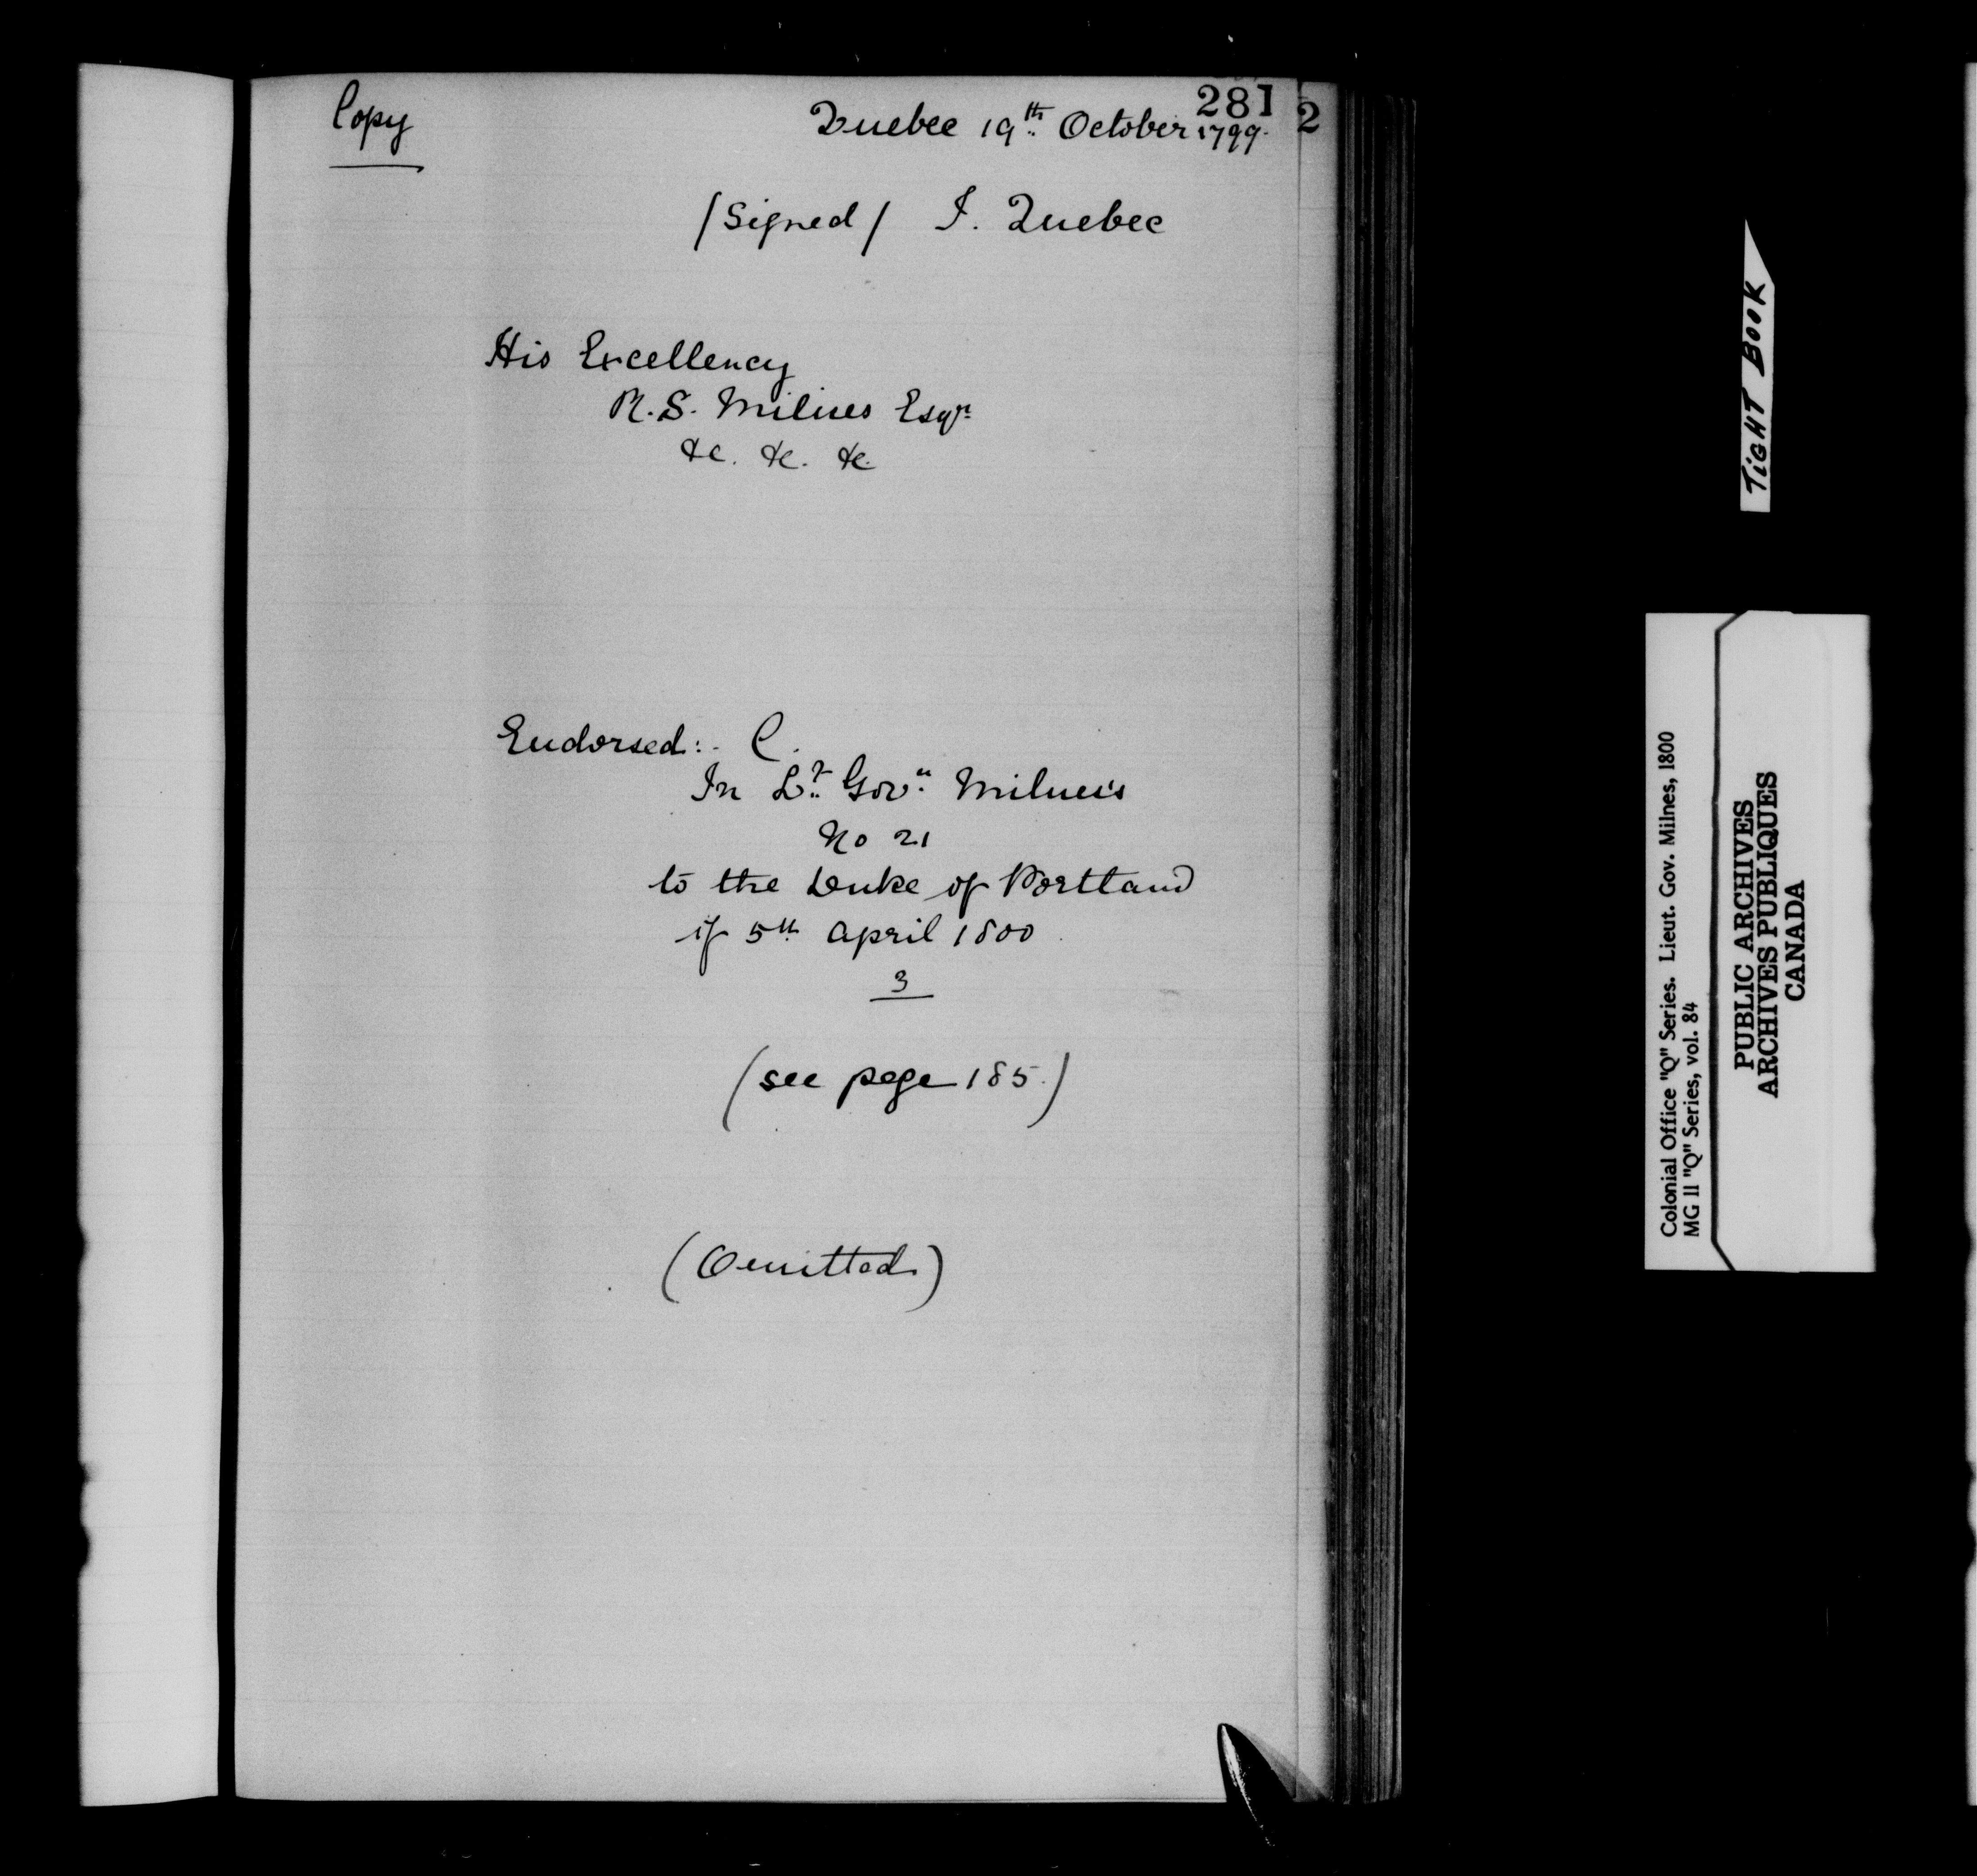 281
2
Copy
Quebec 19th October 1799.
/Signed/ J. Quebec
His Excellency
R. S. Milnes Esqr
&c. &c. &c.
Endorsed:- C.
In Lt. Govr. Milnes's
No 21
to the Duke of Portland
of 5th April 1800
3
(see page 185.)
(Omitted)
TIGHT BOOK
Colonial Office "Q" Series. Lieut. Gov. Milnes, 1800
MG 11 "Q" Series, vol. 84
PUBLIC ARCHIVES
ARCHIVES PUBLIQUES
CANADA